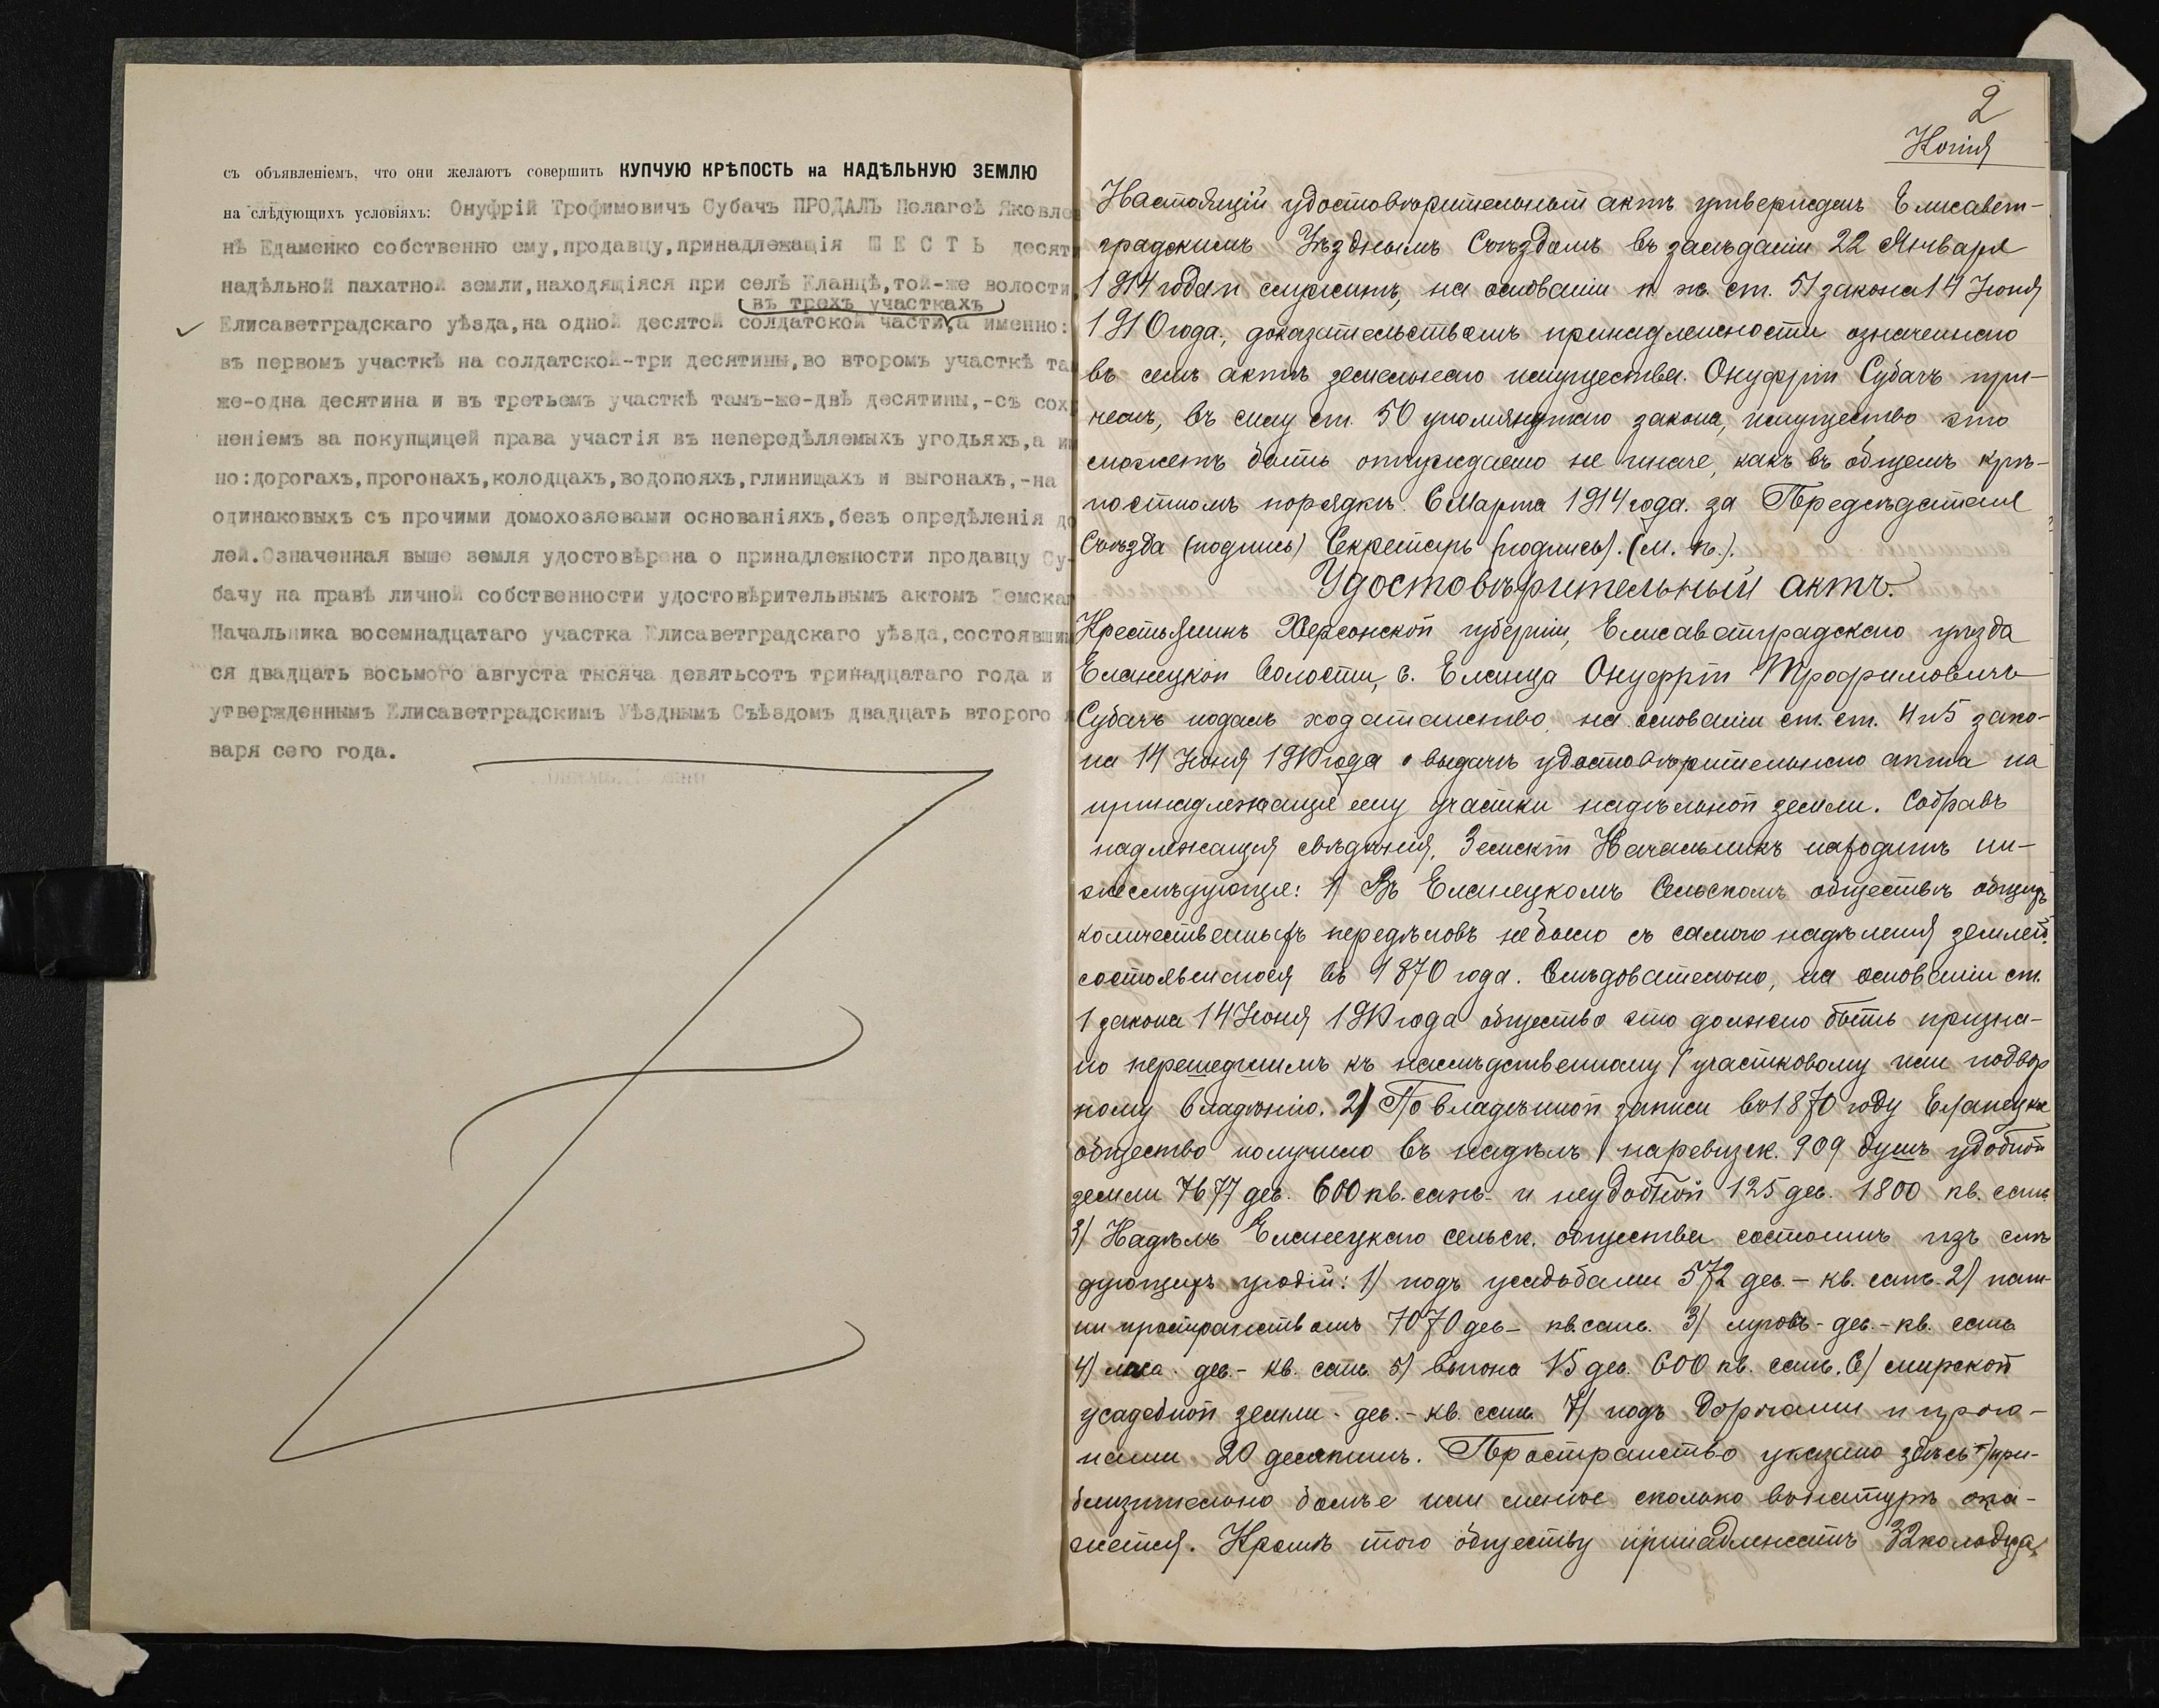 съ объявленіемъ, что они желаютъ совершить КУПЧУЮ КРѢПОСТЬ на НАДѢЛЬНУЮ ЗЕМЛЮ
на слѣдующихъ условіяхъ: Онуфрій Трофимовичъ Субачъ ПРОДАЛЪ Пелагеѣ Яковле
нѣ Едаменко собственно ему,продавцу,принадлежащія Ш Е С Т Ь десят
надѣльной пахатной земли,находящіяся при селѣ Еланцѣ,той-же волости,
въ трехъ участкахъ
Елисаветградскаго уѣзда,на одной десятой солдатской части,а именно:
въ первомъ участкѣ на солдатской-три десятины,во второмъ участкѣ та
же-одна десятина и въ третьемъ участкѣ тамъ-же-двѣ десятины,-съ сох
неніемъ за покупщицей права участія въ непередѣляемыхъ угодьяхъ,а и
но:дорогахъ,прогонахъ,колодцахъ,водопояхъ,глинищахъ и выгонахъ,-на
одинаковыхъ съ прочими домохозяевами основаніяхъ,безъ опредѣленія до
лей.Означенная выше земля удостовѣрена о принадлежности продавцу Су-
бачу на правѣ личной собственности удостовѣрительнымъ актомъ Земскаг
Начальника восемнадцатаго участка Елисаветградскаго уѣзда,состоявши
ся двадцать восьмого августа тысяча девятьсотъ тринадцатаго года и
утвержденнымъ Елисаветградскимъ Уѣзднымъ Съѣздомъ двадцать второго я
варя сего года.
2
Копія
Настоящій удостовѣрительный актъ утвержденъ Елисавет-
градскимъ Уѣзднымъ Съѣздомъ въ засѣданіи 22 Января
1914 года и служитъ, на основаніи п. ж. ст. 51 закона 14 Іюня
1910 года, доказательствомъ принадлежности означеннаго
въ семъ актѣ земельнаго имущества. Онуфрій Субачъ при-
чемъ, въ силу ст. 50 упомянутаго закона, имущество это
можетъ быть отчуждаемо не иначе, какъ въ общемъ крѣ-
постномъ порядкѣ. 6 Марта 1914 года. за Предсѣдателя
Съѣзда (подпись) Секретарь (подпись). (М. п.).
Удостовѣрительный актъ.
Крестьянинъ Херсонской губерніи, Елисаветградскаго уѣзда
Еланецкой волости, с. Еланца Онуфрій Трофимовичъ
Субачъ подалъ ходатайство, на основаніи ст. ст. 4 и 5 зако-
на 14 Іюня 1910 года о выдачѣ удостовѣрительнаго акта на
принадлежащіе ему участки надѣльной земли. Собравъ
надлежащія свѣдѣнія, Земскій Начальникъ находитъ ни-
жеслѣдующее: 1) Въ Еланецкомъ Сельскомъ обществѣ общихъ
количественныхъ передѣловъ не было съ самаго надѣленія землей,
состоявшагося въ 1870 года. Слѣдовательно, на основаніи ст.
1 закона 14 Іюня 1910 года общество это должно быть призна-
но перешедшимъ къ наслѣдственному (участковому или подвор
ному владѣнію. 2) По владѣнной записи въ 1870 году Еланецкое
общество получило въ надѣлъ / на ревизск. 909 душъ удобной
земли 7677 дес. 600 кв. саж. и неудобной 125 дес. 1800 кв. саж.
3) Надѣлъ Еланецкаго сельск. общества состоитъ изъ слѣ
дующихъ угодій: 1) подъ усадьбами 572 дес. – кв. саж. 2) паш-
ни пространствомъ 7070 дес – кв. саж. 3) луговъ - дес. – кв. саж.
4) лѣса - дес. – кв. саж. 5) выгона 15 дес. 600 кв. саж. 6) мирской
усадебной земли - дес. – кв. саж. 7) подъ дорогами и прого-
нами 20 десятинъ. Пространство указано здѣсь при-
близительно болѣе или менѣе сколько въ натурѣ ока-
жется. Кромѣ того обществу принадлежатъ 32 колодца,